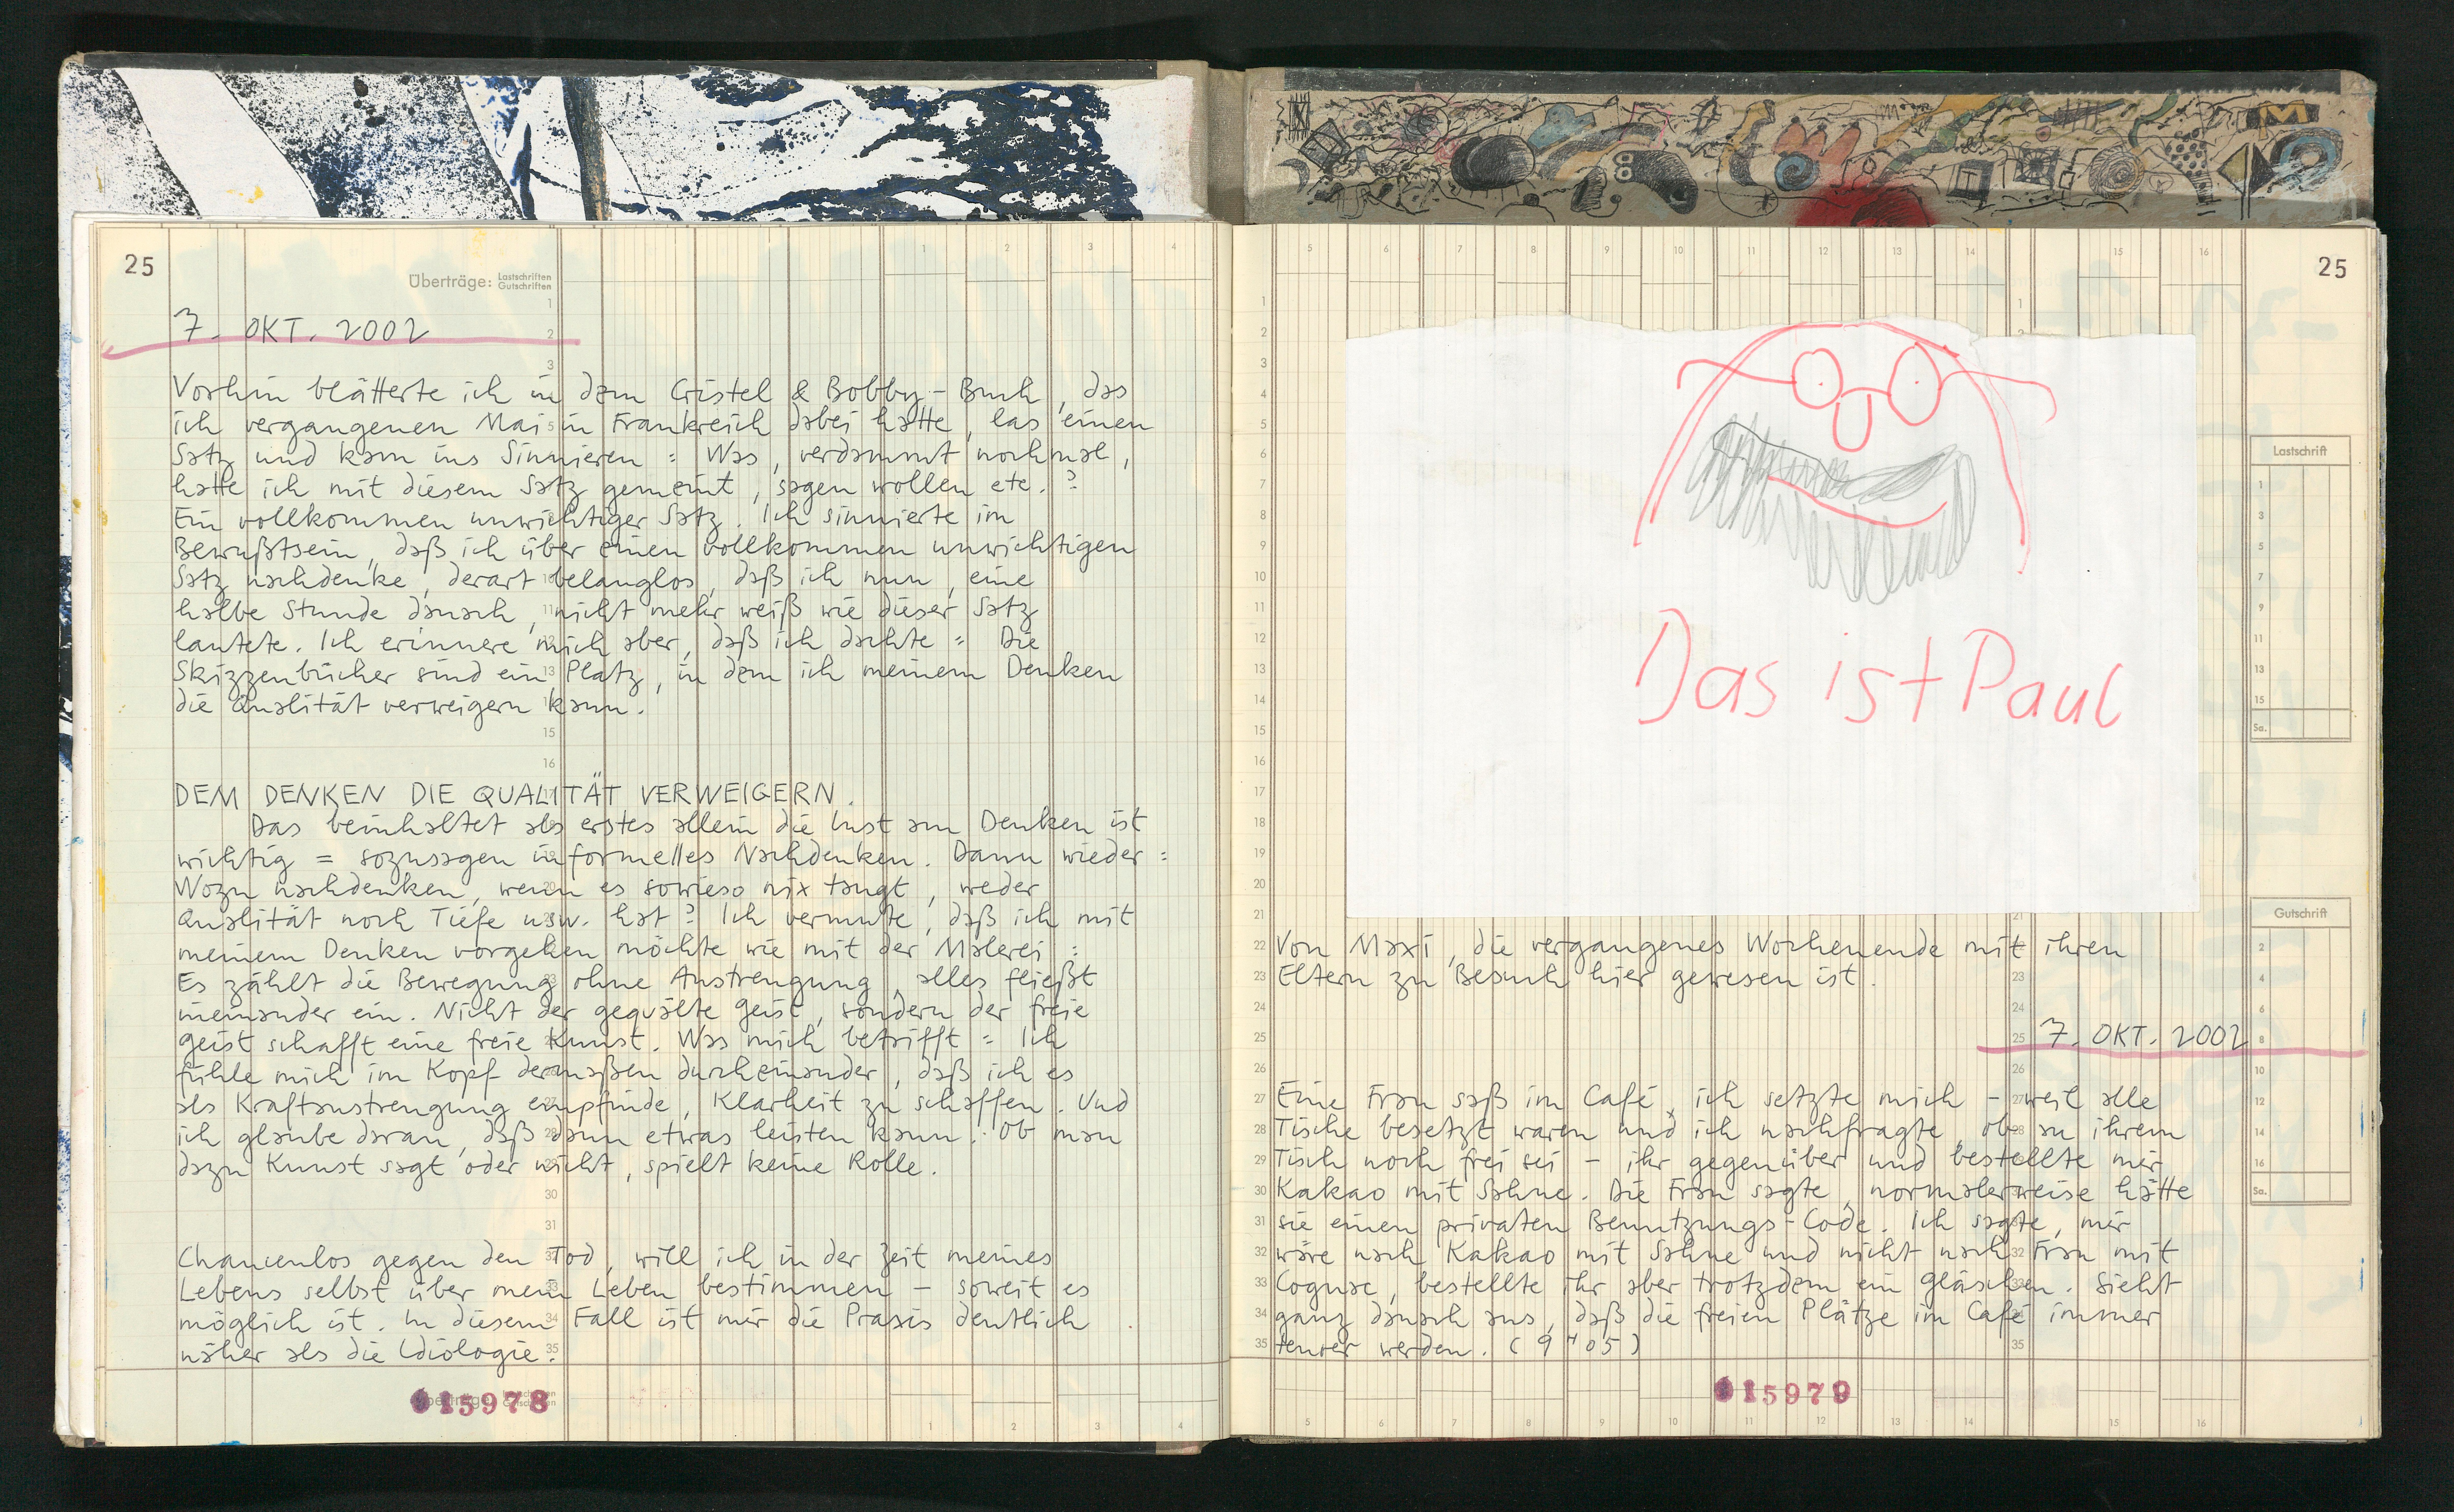 25
Überträge: Lastschriften Gutschriften
7. OKT. 2002
Vorhin blätterte ich in dem Cristel & Bobby-Buch, das
ich vergangenen Mai in Frankreich dabei hatte, las einen
Satz und kam ins Sinnieren = Was, verdammt nochmal,
hatte ich mit diesem Satz gemeint, sagen wollen etc.?
Ein vollkommen unwichtiger Satz. Ich sinnierte im
Bewußtsein, daß ich über einen vollkommen unwichtigen
Satz nachdenke, derart belanglos, daß ich nun, eine
halbe Stunde danach, nicht mehr weiß wie dieser Satz
lautete. Ich erinnere mich aber, daß ich dachte = Die
Skizzenbücher sind ein Platz, in dem ich meinem Denken
die Qualität verweigern kann.
DEM DENKEN DIE QUALITÄT VERWEIGERN.
Das beinhaltet als erstes allein die Lust am Denken ist
wichtig = sozusagen informelles Nachdenken. Dann wieder =
Wozu nachdenken, wenn es sowieso nix taugt, weder
Qualität noch Tiefe usw. hat? Ich vermute, daß ich mit
meinem Denken vorgehen möchte wie mit der Malerei :
Es zählt die Bewegung ohne Anstrengung, alles fließt
ineinander ein. Nicht der gequälte Geist, sondern der freie
Geist schafft eine freie Kunst. Was mich betrifft = Ich
fühle mich im Kopf dermaßen durcheinander, daß ich es
als Kraftanstrengung empfinde, Klarheit zu schaffen. Und
ich glaube daran, daß dann etwas leisten kann. Ob man
dazu Kunst sagt oder nicht, spielt keine Rolle.
Chancenlos gegen den Tod, will ich in der Zeit meines
Lebens selbst über mein Leben bestimmen – soweit es
möglich ist. In diesem Fall ist mir die Praxis deutlich
näher als die Idiologie.
015978
25
Das ist Paul
Lastschrift
Sa.
Gutschrift
Sa.
Von Maxi, die vergangenes Wochenende mit ihren
Eltern zu Besuch hier gewesen ist.
7. OKT. 2002
Eine Frau saß im Café, ich setzte mich – weil alle
Tische besetzt waren und ich nachfragte, ob an ihrem
Tisch noch frei sei – ihr gegenüber und bestellte mir
Kakao mit Sahne. Die Frau sagte, normalerweise hätte
sie einen privaten Benutzungs-Code. Ich sagte, mir
wäre nach Kakao mit Sahne und nicht nach Frau mit
Cognac, bestellte ihr aber trotzdem ein Gläschen. Sieht
ganz danach aus, daß die freien Plätze im Café immer
teurer werden. (9H05)
015979